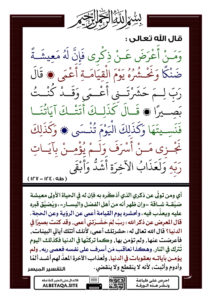 بسم الله الرحمن الرحيم
قال الله تعالى :
وَمَنْ أَعْرَضَ عَنْ ذِكْرِي فَإِنَّ لَهُ مَعِيشَةً
ضَنْكًا وَنَحْشُرُهُ يَوْمَ الْقِيَامَةِ أَعْمَى قَالَ
رَبِّ لِمَ حَشَرْتَنِي أَعْمَى وَقَدْ كُنْتُ
بَصِيرًا قَالَ كَذَلِكَ أَتَتْكَ آيَاتُنَا
فَنَسِيتَهَا وَكَذَلِكَ الْيَوْمَ تُنْسَى وَكَذَلِكَ
نَجْزِي مَنْ أَسْرَفَ وَلَمْ يُؤْمِنْ بِآيَاتِ
رَبِّهِ وَلَعَذَابُ الْآخِرَةِ أَشَدُّ وَأَبْقَى
(طه : ١٢٤ - ١٢٧)
أي ومن تولَّى عن ذكري الذي أذكِّره به فإن له في الحياة الأولى معيشة
ضيِّقة شاقَّة -وإن ظهر أنه من أهل الفضل واليسار-، ويُضيَّق قبره
عليه ويعذَّب فيه، ونحشره يوم القيامة أعمى عن الرؤية وعن الحجة.
قال المعرِض عن ذكر الله : ربِّ لِمَ حَشَرْتني أعمى، وقد كنت بصيرًا في
الدنيا؟ قال الله تعالى له: حشرتك أعمى، لأنك أتتك آياتي البينات،
فأعرضت عنها، ولم تؤمن بها، وكما تركتَها في الدنيا فكذلك اليوم
تُترك في النار. وهكذا نعاقب مَن أسرف على نفسه فعصى ربه، ولم
يؤمن بآياته بعقوبات في الدنيا، ولعذاب الآخرة المعدّ لهم أشد ألمًا
وأدوم وأثبت؛ لأنه لا ينقطع ولا ينقضي.
التفسير الميسر
ALBETAQA.SITE